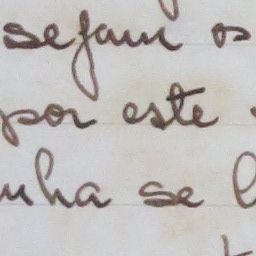 sejam os
por este
nha se